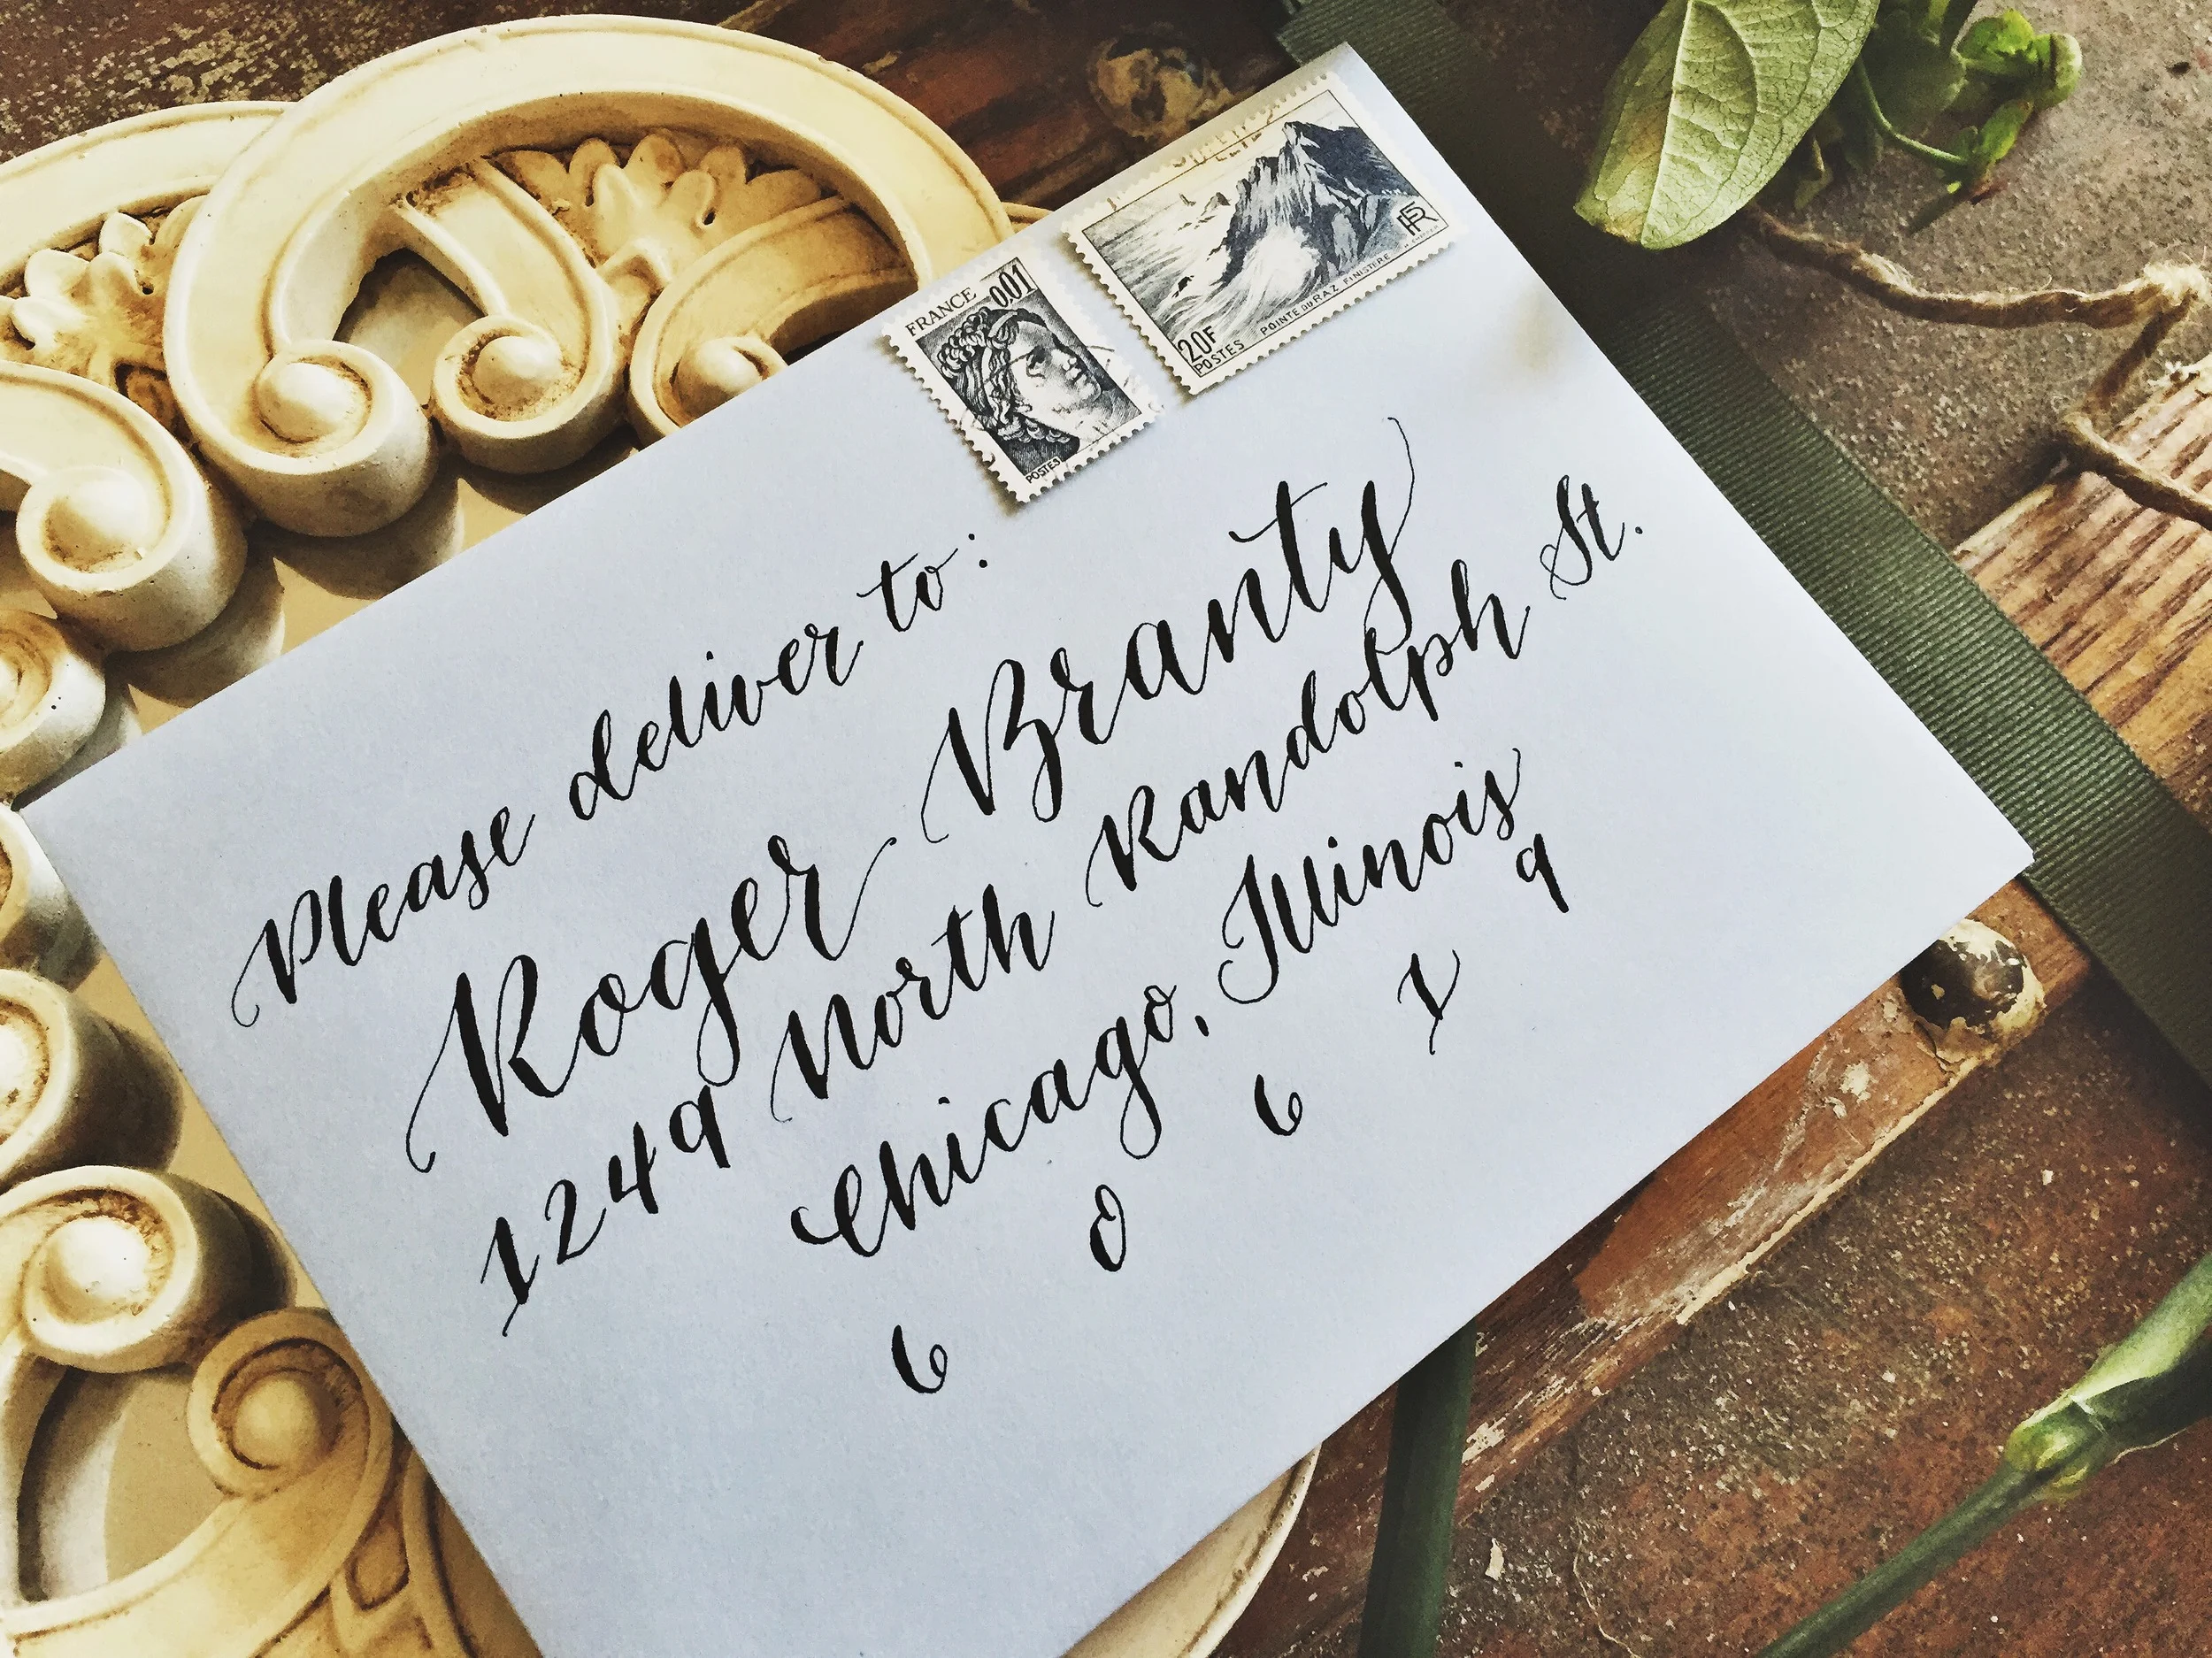 FRANCE 0.01
POSTES
RF
20F POINTE DU RAZ FINISTERE
POSTES
Please deliver to:
Roger Branty
1249 North Randolph St.
Chicago, Illinois
6 0 6 1 9